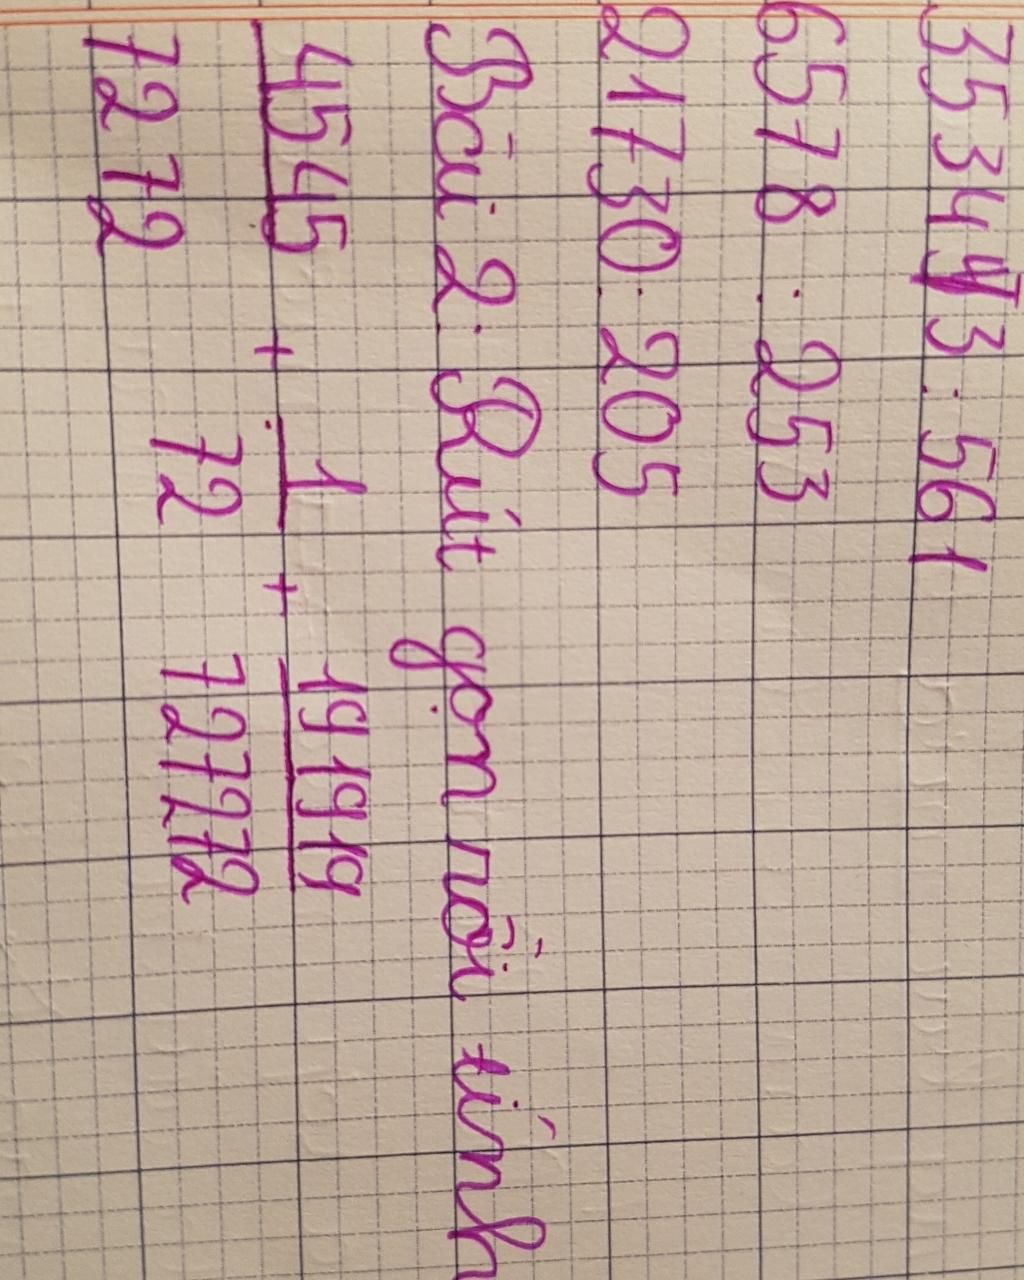 353443 : 561
6578 : 253
21730 : 205
Bài 2: Rút gọn rồi tính
4545 + 1 + 191919
7272 72 727272